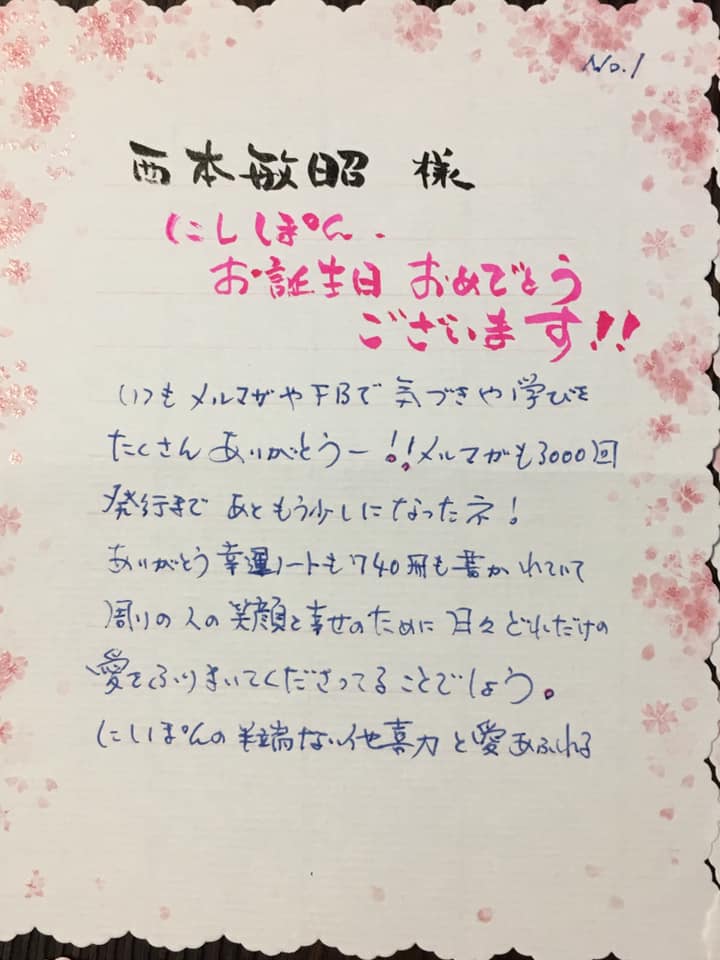 No.1
西本敏昭 様
にしぽん、
お誕生日 おめでとう
ございます!!
いつもメルマガやFBで 気づきや学びを
たくさん ありがとうー!!メルマガも3000回
発行まで あともう少しになったネ!
ありがとう 幸運ノートも740冊も書かれていて
周りの人の笑顔と幸せのために日々どれだけの
愛をふりまいてくださってることでしょう。
にしぽんの半端ない他喜力と愛あふれる